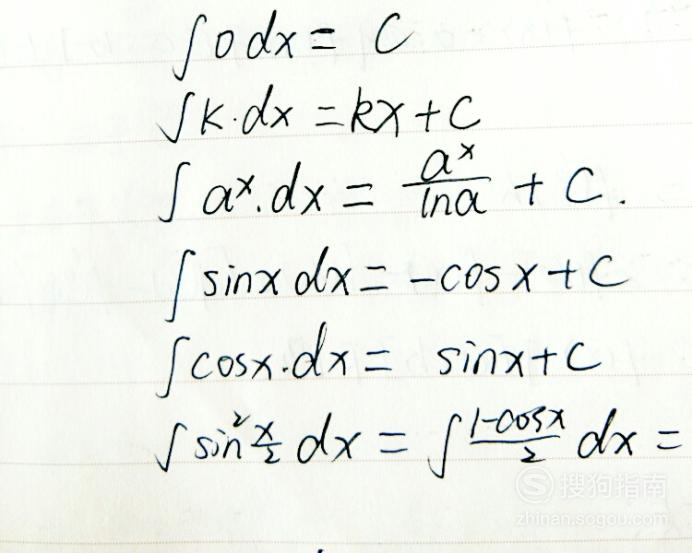 ∫0dx = C
∫k·dx = kx+C
∫aˣ·dx = aˣ/lna + C.
∫sinx dx = -cosx+C
∫cosx·dx = sinx+C
∫sin²x/2 dx = ∫(1-cosx)/2 dx =
搜狗指南
zhinan.sogou.com